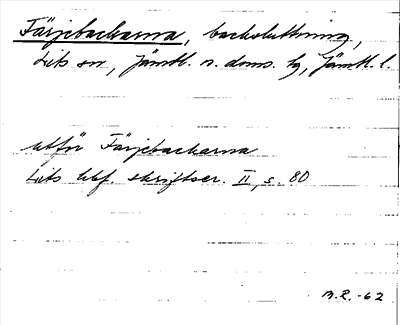 Färjebackarna, backsluttning,
Lits sn, Jämtl. n. doms. hg, Jämtl. l.
utför Färjebackarna
Lits hbf. skriftser. II, s. 80
M.R. -62